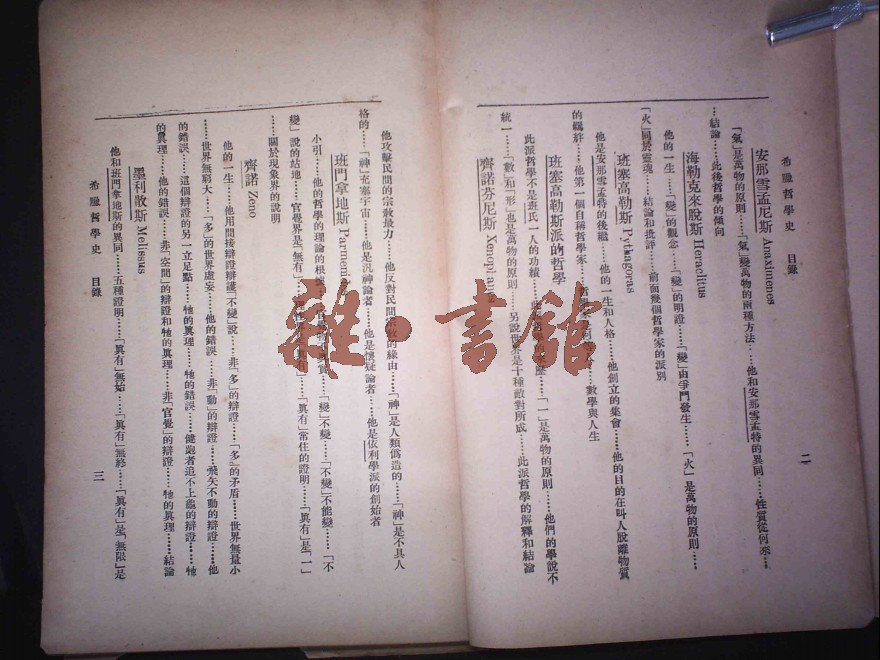 希臘哲學史 目錄
二
安那雪孟尼斯 Anaximenes
「氣」是萬物的原則……「氣」變萬物的兩種方法……他和安那雪孟特的異同……性質從何來…
…結論……此後哲學的傾向
海勒克來脫斯 Heraclitus
他的一生……「變」的觀念……「變」的明證……「變」由爭鬥發生……「火」是萬物的原則……
「火」同於靈魂……結論和批評……前面幾個哲學家的派別
班塞高勒斯 Pythagoras
他是安那雪孟特的後繼……他的一生和人格……他創立的集會……他的目的在叫人脫離物質
的羈絆……他第一個自稱哲學家……數學與人生
班塞高勒斯派的哲學
此派哲學不是班氏一人的功績……「一」是萬物的原則……他們的學說不
統一……「數」和「形」也是萬物的原則……另說世界是十種敵對所成……此派哲學的解釋和結論
齊諾芬尼斯 Xenophanes
他攻擊民間的宗教最力……他反對民間宗教的緣由……「神」是人類僞造的……「神」是不具人
格的……「神」充塞宇宙……他是汎神論者……他是懷疑論者……他是依利學派的創始者
班門拿地斯 Parmenides
小引……他的哲學的理論的根據……「變」不變……「不變」不能變……「不
變」說的站地……官覺界是「無有」……「眞有」常住的證明……「眞有」是「一」
……關於現象界的說明
齊諾 Zeno
他的一生……他用間接辯證辯護「不變」說……非「多」的辯證……「多」的矛盾……世界無量小
……世界無窮大……「多」的世界虛妄……他的錯誤……非「動」的辯證……飛矢不動的辯證……他
的錯誤……這個辯證的另一立足點……牠的眞理……牠的錯誤……健跑者追不上龜的辯證……牠
的眞理……他的錯誤……非「空間」的辯證和牠的眞理……非「官覺」的辯證……牠的眞理……結論
墨利散斯 Melissus
他和班門拿地斯的異同……五種證明……「眞有」無始……「眞有」無終……「眞有」是「無限」是
希臘哲學史 目錄
三
雅一書館